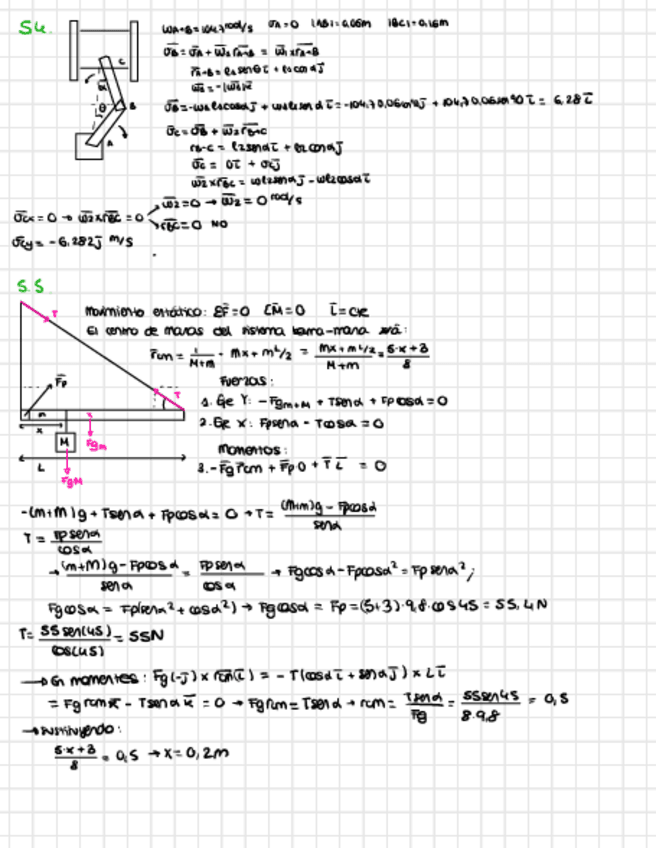 S4.
ω̄A-B = 104,7 rad/s  v̄A = 0  |AB| = 0,06m  |BC| = 0,16m
v̄B = v̄A + ω̄1 x r̄A-B = ω̄1 x r̄A-B
r̄A-B = l1 senθ ī + l1 cosα j̄
ω̄1 = -|ω1| k̄
v̄B = -ω1 l1 cosα j̄ + ω1 l1 sen α ī = -104,7·0,06 cos j̄ + 104,7·0,06 sen 90 ī = 6,28 ī
v̄C = v̄B + ω̄2 x r̄B-C
rB-C = l2 senα ī + l2 cosα j̄
v̄C = 0ī + vC j̄
ω̄2 x r̄BC = ωl2 senα j̄ - ωl2 cosα ī
v̄Cx = 0 → ω̄2 x r̄BC = 0
ω̄2 = 0 → ω̄2 = 0 rad/s
r̄BC = 0 NO
v̄Cy = -6,282 j̄ m/s
C
α
θ
B
A
S.S
Movimiento estático: ΣF̄ = 0  ΣM̄ = 0  L̄ = cte
El centro de masas del sistema barra-masa será:
r̄cm = 1/(M+m) · Mx + m L/2 = (Mx + m L/2)/(M+m) = (5·x + 3)/8
Fuerzas:
1. Eje Y: -Fg m+M + T senα + Fp cosα = 0
2. Eje X: Fp senα - T cosα = 0
Momentos:
3. -F̄g r̄cm + F̄p 0 + T̄ L̄ = 0
T
F̄p
T
m
x
M
Fgm
L
FgM
-(m+M)g + T senα + Fp cosα = 0 → T = ((M+m)g - Fp cosα)/senα
T = Fp senα/cosα
→ ((m+M)g - Fp cosα)/senα = Fp senα/cosα → Fg cosα - Fp cosα² = Fp senα²;
Fg cosα = Fp(senα² + cosα²) → Fg cosα = Fp = (5+3)·9,8·cos45 = 55,4N
T = 55 sen(45)/cos(45) = 55N
→ En momentos: Fg(-j̄) x rcm(ī) = -T(cosα ī + senα j̄) x L ī
= Fg rcm k̄ - T senα k̄ = 0 → Fg rcm = T senα → rcm = T senα/Fg = 55 sen45/8·9,8 = 0,5
→ Sustituyendo:
(5·x + 3)/8 = 0,5 → x = 0,2m